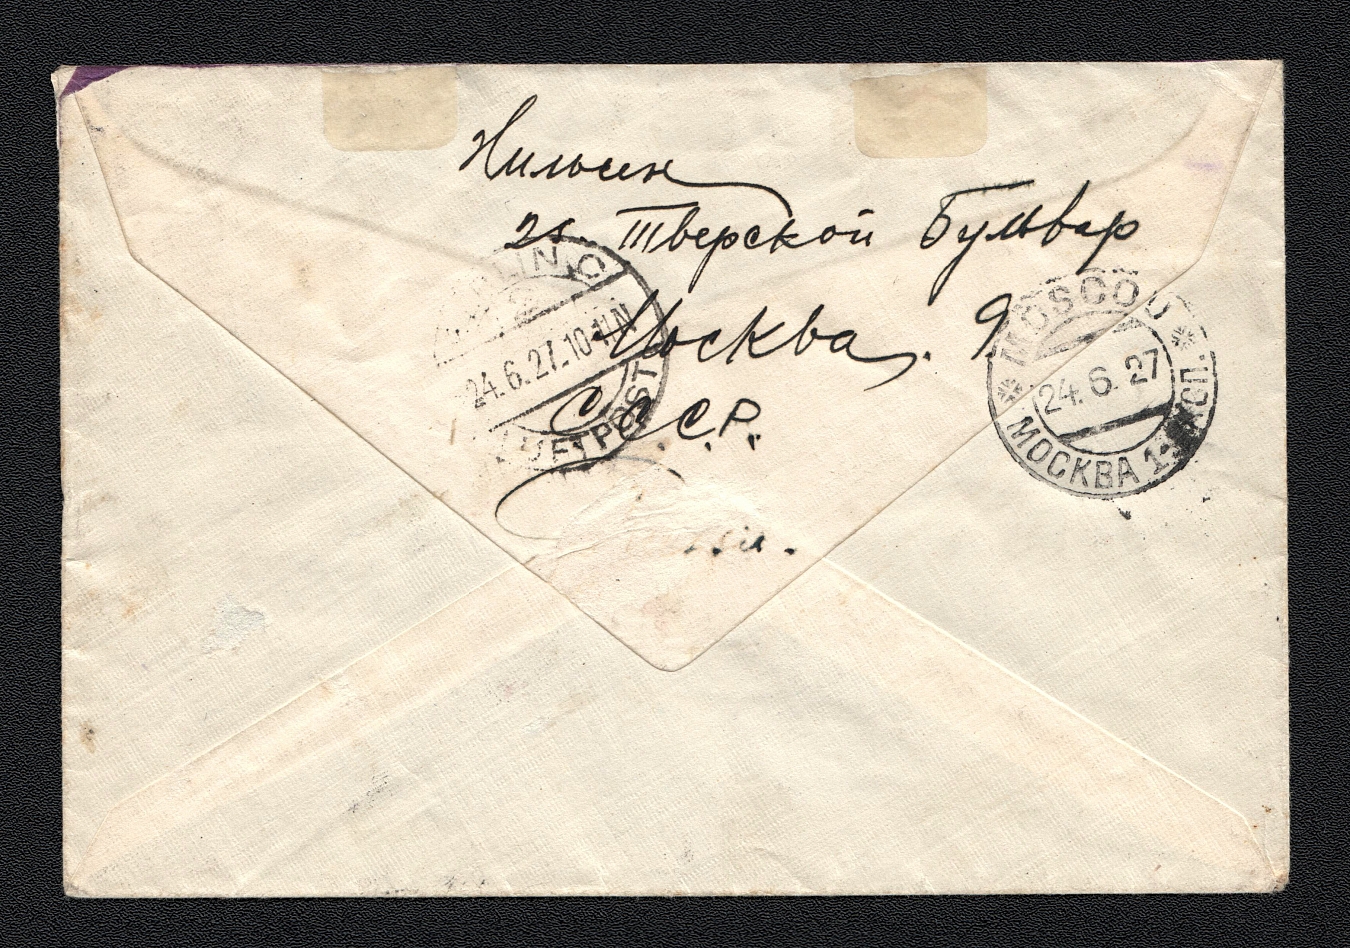 Нильсен
25. Тверской Бульвар
Москва. 9
С.С.С.Р.
24.6.27.10-11N
LUFTPOST
MOSCOU
24.6.27
МОСКВА 1-